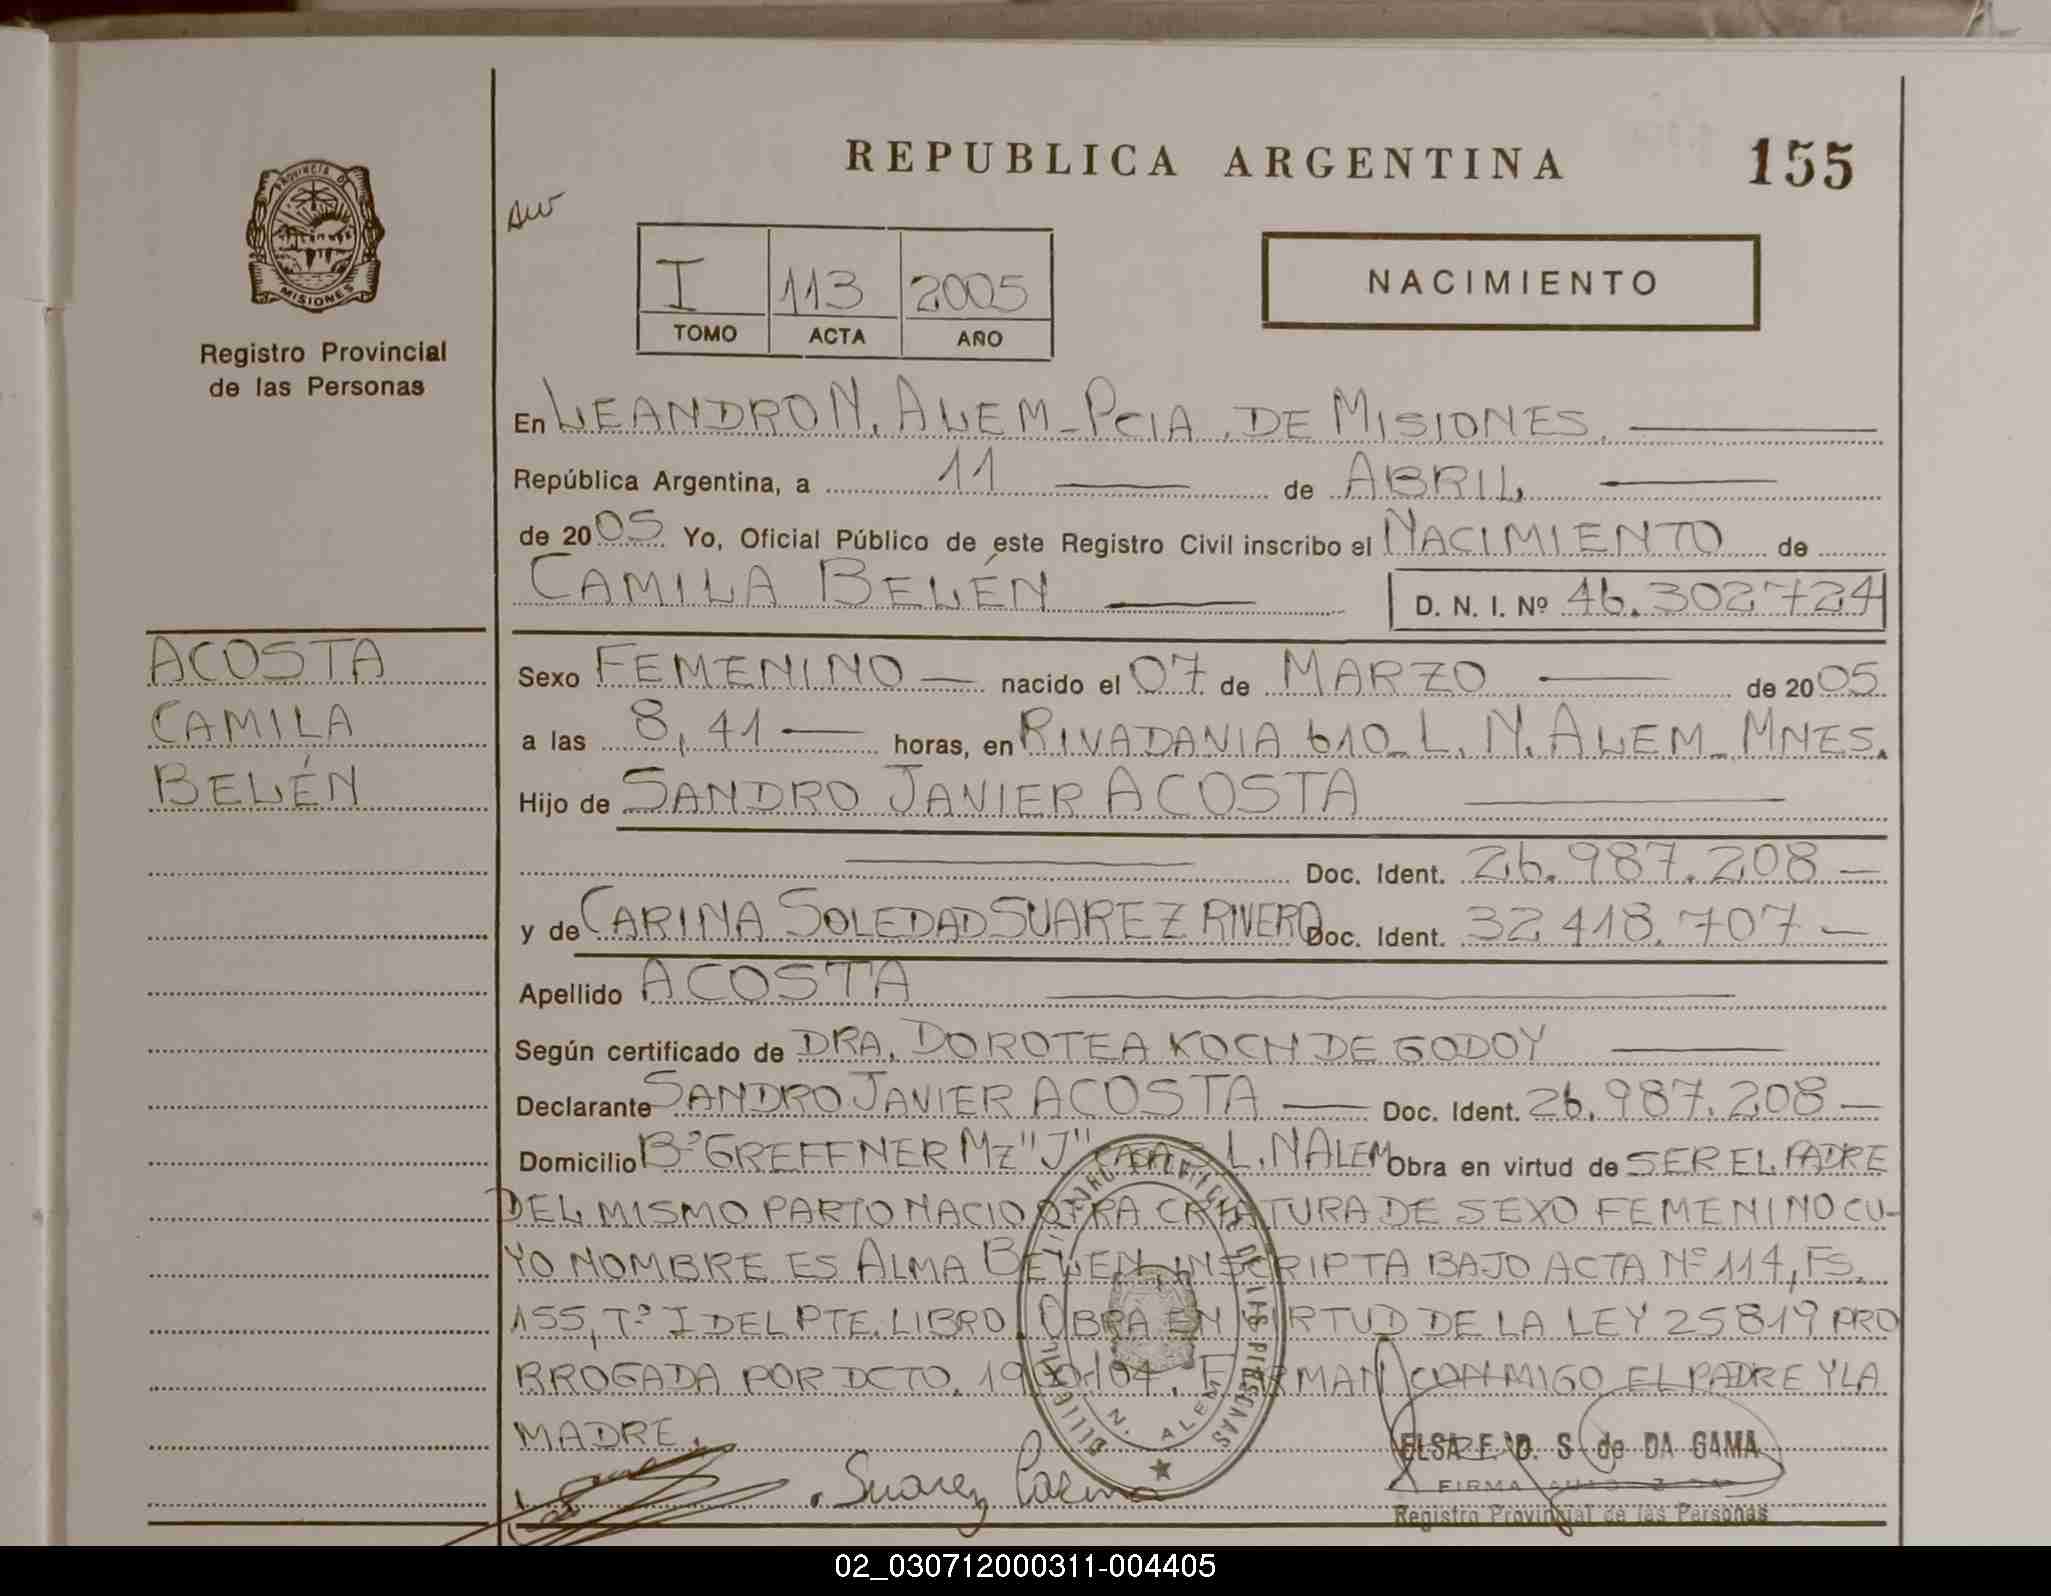 REPUBLICA ARGENTINA 155
PROVINCIA DE
MISIONES
Registro Provincial
de las Personas
I 113 2005
TOMO ACTA AÑO
NACIMIENTO
En LEANDRO N. ALEM - PCIA. DE MISIONES.
República Argentina, a 11 de ABRIL
de 2005 Yo, Oficial Público de este Registro Civil inscribo el NACIMIENTO de
CAMILA BELÉN D. N. I. Nº 46.302724
ACOSTA
CAMILA
BELÉN
Sexo FEMENINO nacido el 07 de MARZO de 2005
a las 8,41 horas, en RIVADAVIA 610 - L. N. ALEM - MNES.
Hijo de SANDRO JAVIER ACOSTA
Doc. Ident. 26.987.208
y de CARINA SOLEDAD SUAREZ RIVERO Doc. Ident. 32 418.707
Apellido ACOSTA
Según certificado de DRA. DOROTEA KOCH DE GODOY
Declarante SANDRO JAVIER ACOSTA Doc. Ident. 26.987.208
Domicilio Bº GREFFNER Mz "J" CASA L. N ALEM Obra en virtud de SER EL PADRE
DEL MISMO PARTO NACIO OTRA CRIATURA DE SEXO FEMENINO CU-
YO NOMBRE ES ALMA BELEN, INSCRIPTA BAJO ACTA Nº 114, FS.
155, Tº I DEL PTE. LIBRO. OBRA EN VIRTUD DE LA LEY 25819 PRO
RROGADA POR DCTO. FIRMAN CONMIGO EL PADRE Y LA
MADRE.
Suarez Carina
N. ALEM
ELSA F. D. S de DA GAMA
FIRMA
Registro Provincial de las Personas
02_030712000311-004405